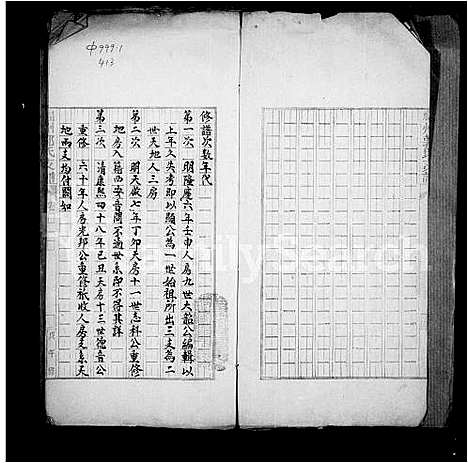 中999.1
413
修譜次數年代
第一次 明隆慶六年壬申人房九世大韶公編輯以
上年久失考即以顯公為一世始祖所出三支為二
世天地人三房
第二次 明天啟七年丁卯天房十一世志科公重修
地房入籍西安音問不通世系即不得其詳
第三次 清康熙四十八年己丑天房十三世德音公
重修 六十年人房光邦公重修祇收人房支系天
地兩支均付闕如
FamilySearch